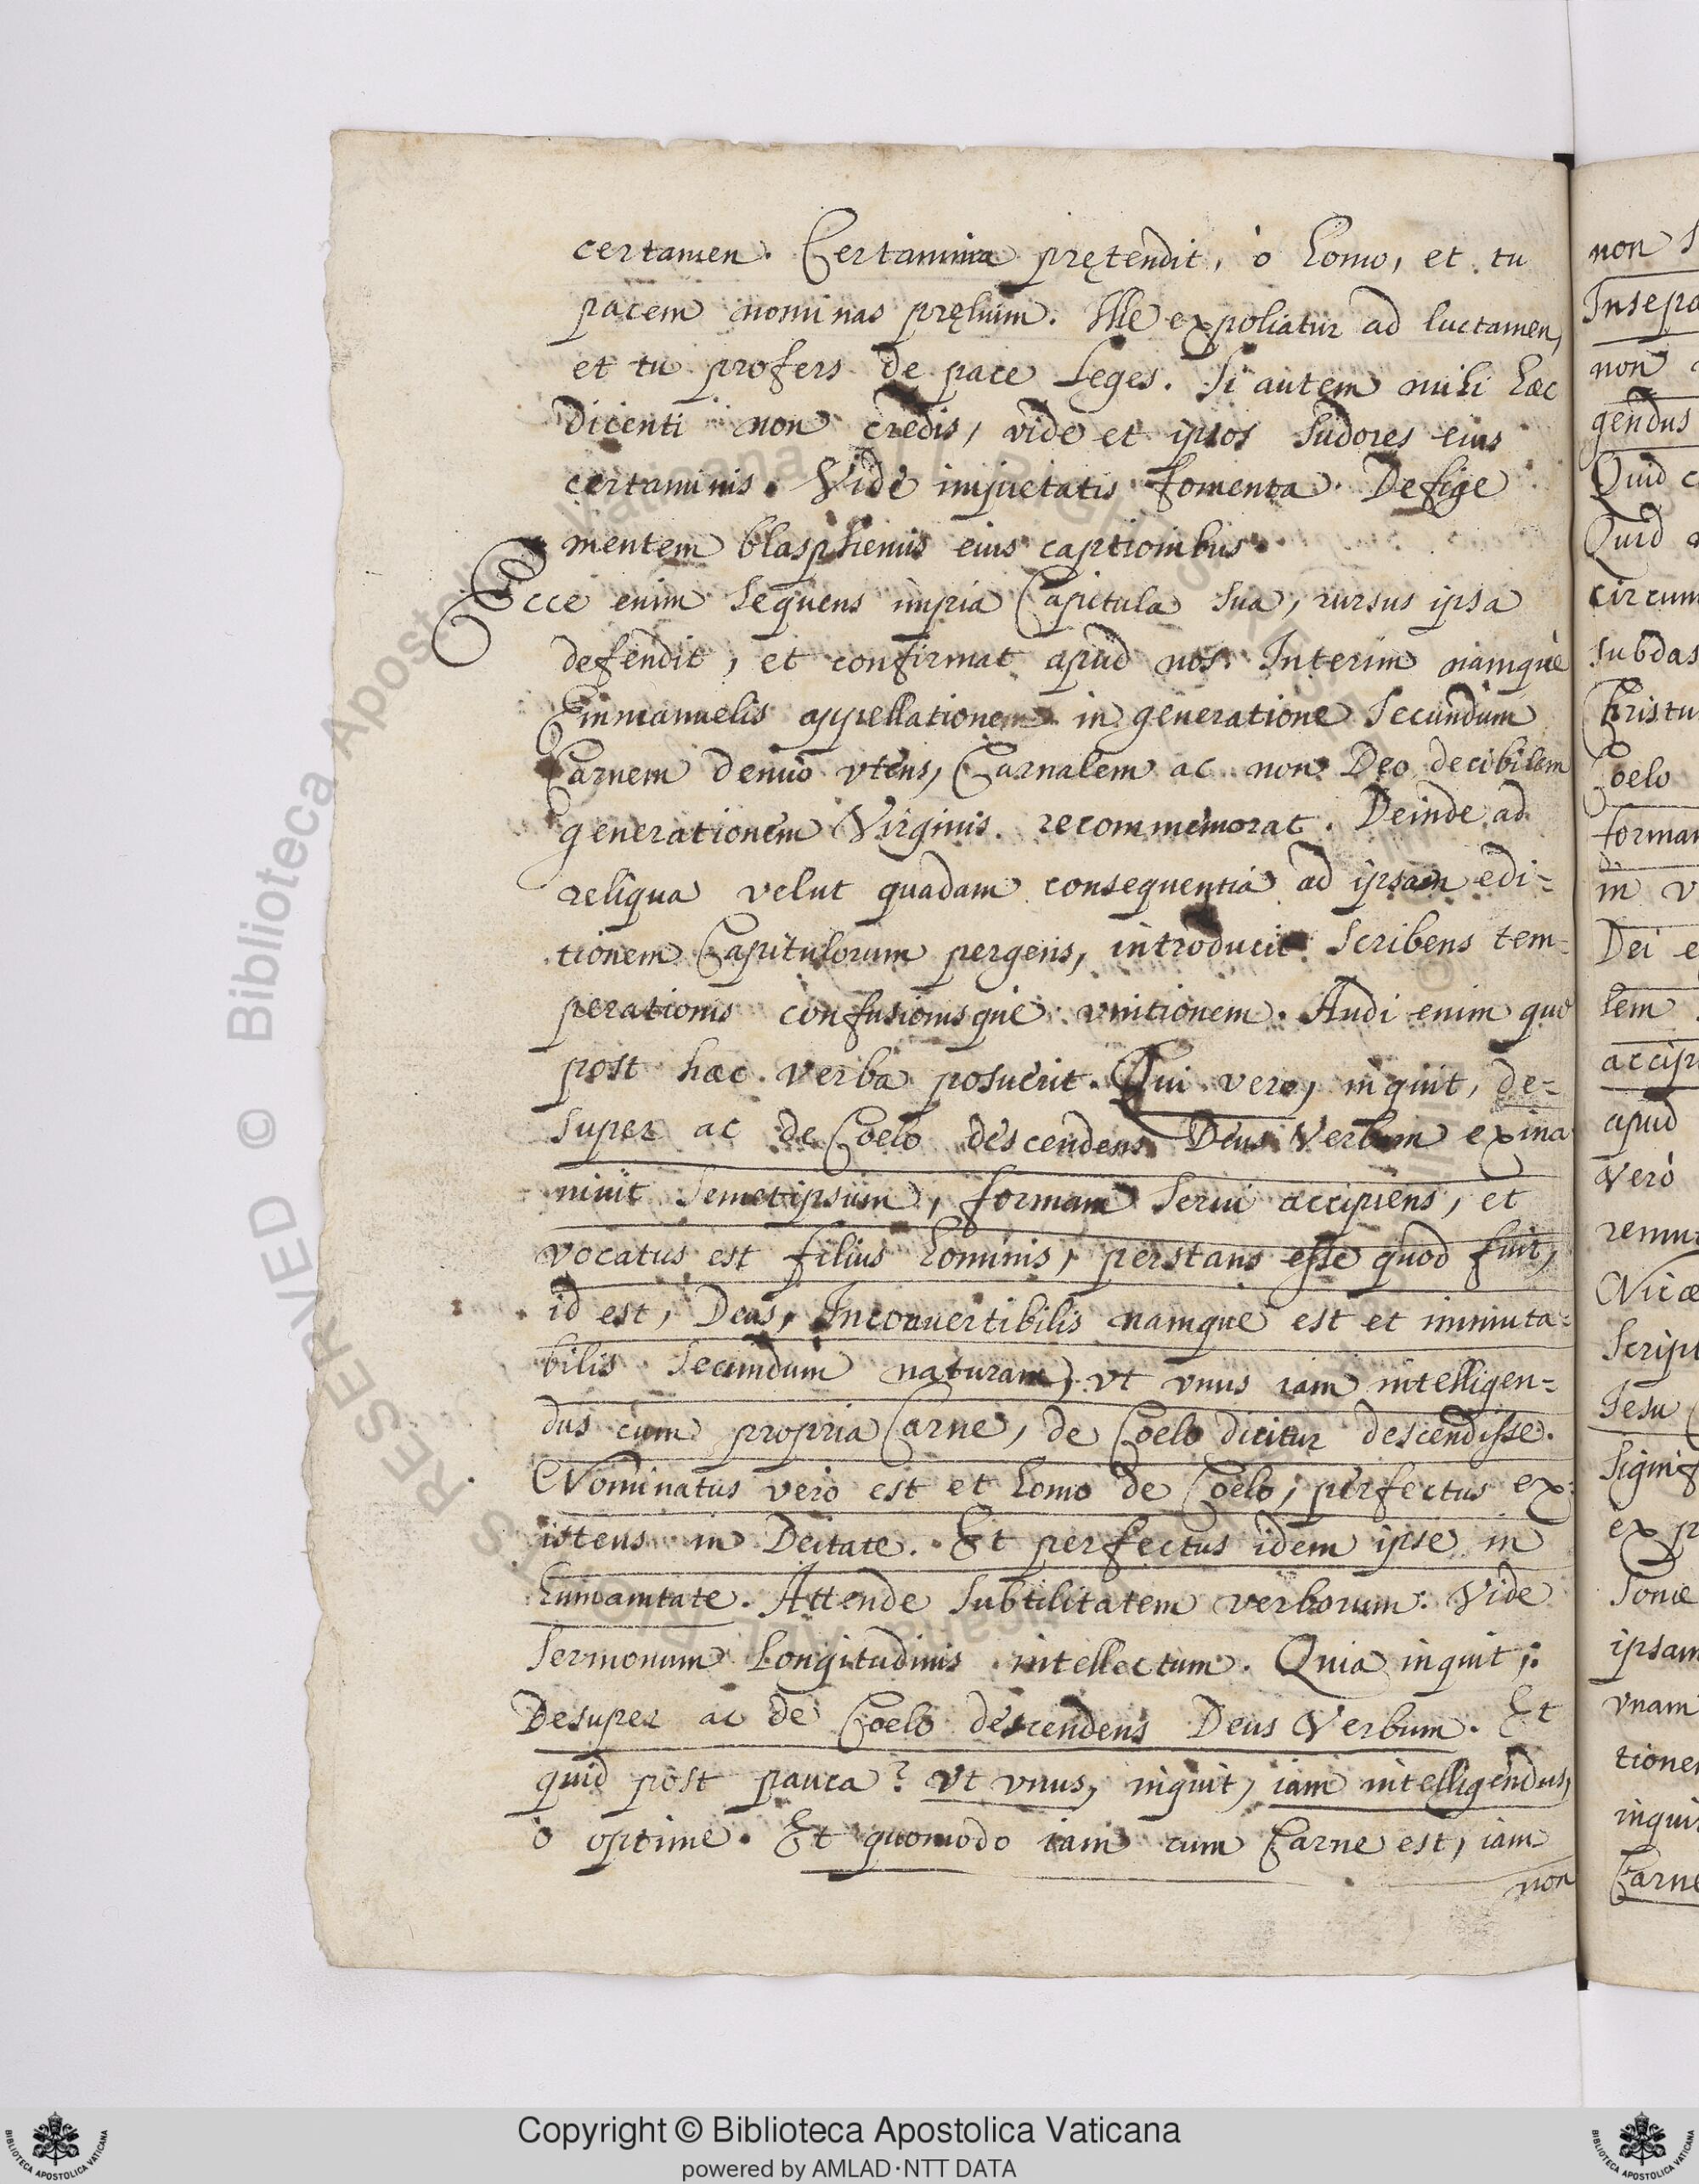 certamen. Certamina prętendit, ò homo, et tu
pacem nominas pręlium. Ille expoliatur ad luctamen,
et tu profers de pace Leges. Si autem mihi hæc
dicenti non credis, vide et ipsos sudores eius
certaminis. Vide impietatis fomenta. Defige
mentem blasphemis eius captionibus.
Ecce enim sequens impia Capitula sua, rursus ipsa
defendit, et confirmat apud nos. Interim namquè
Emmanuelis appellationem in generatione secundum
Carnem denuò vtens, Carnalem ac non Deo decibilem
generationem Virginis recommemorat. Deinde ad
reliqua velut quadam consequentia ad ipsam edi=
tionem Capitulorum pergens, introducit scribens tem=
perationis confusionisquè vnitionem. Audi enim quę
post hæc verba posuerit. Qui vero, inquit, de=
super ac de Coelo descendens Deus Verbum exina
niuit semetipsum, formam serui accipiens, et
vocatus est filius hominis, perstans esse quod fuit,
id est, Deus, Inconuertibilis namquè est et immuta=
bilis secundum naturam, vt vnus iam intelligen=
dus cum propria Carne, de Coelo dicitur descendisse.
Nominatus verò est et homo de Coelo, perfectus ex=
istens in Deitate. Et perfectus idem ipse in
humanitate. Attende subtilitatem verborum. Vide
sermonum Longitudinis intellectum. Quia inquit;
Desuper ac de Coelo descendens Deus Verbum. Et
quid post pauca? Vt vnus, inquit, iam intelligendus,
ò optime. Et quomodo iam cum Carne est, iam
non
non
Insepa
non
gendus
Quid
Quid
circum
subdas
Christu
Coelo
forma
in v
Dei e
lem
accipi
apud
verò
remu
Nicæ
Script
Iesu
signif
ex p
sonæ
ipsam
vnam
tione
inqui
Carne
© Biblioteca Apostolica Vaticana ALL RIGHTS RESERVED
Copyright © Biblioteca Apostolica Vaticana
powered by AMLAD·NTT DATA
BIBLIOTECA APOSTOLICA VATICANA
BIBLIOTECA APOSTOLICA VATICANA